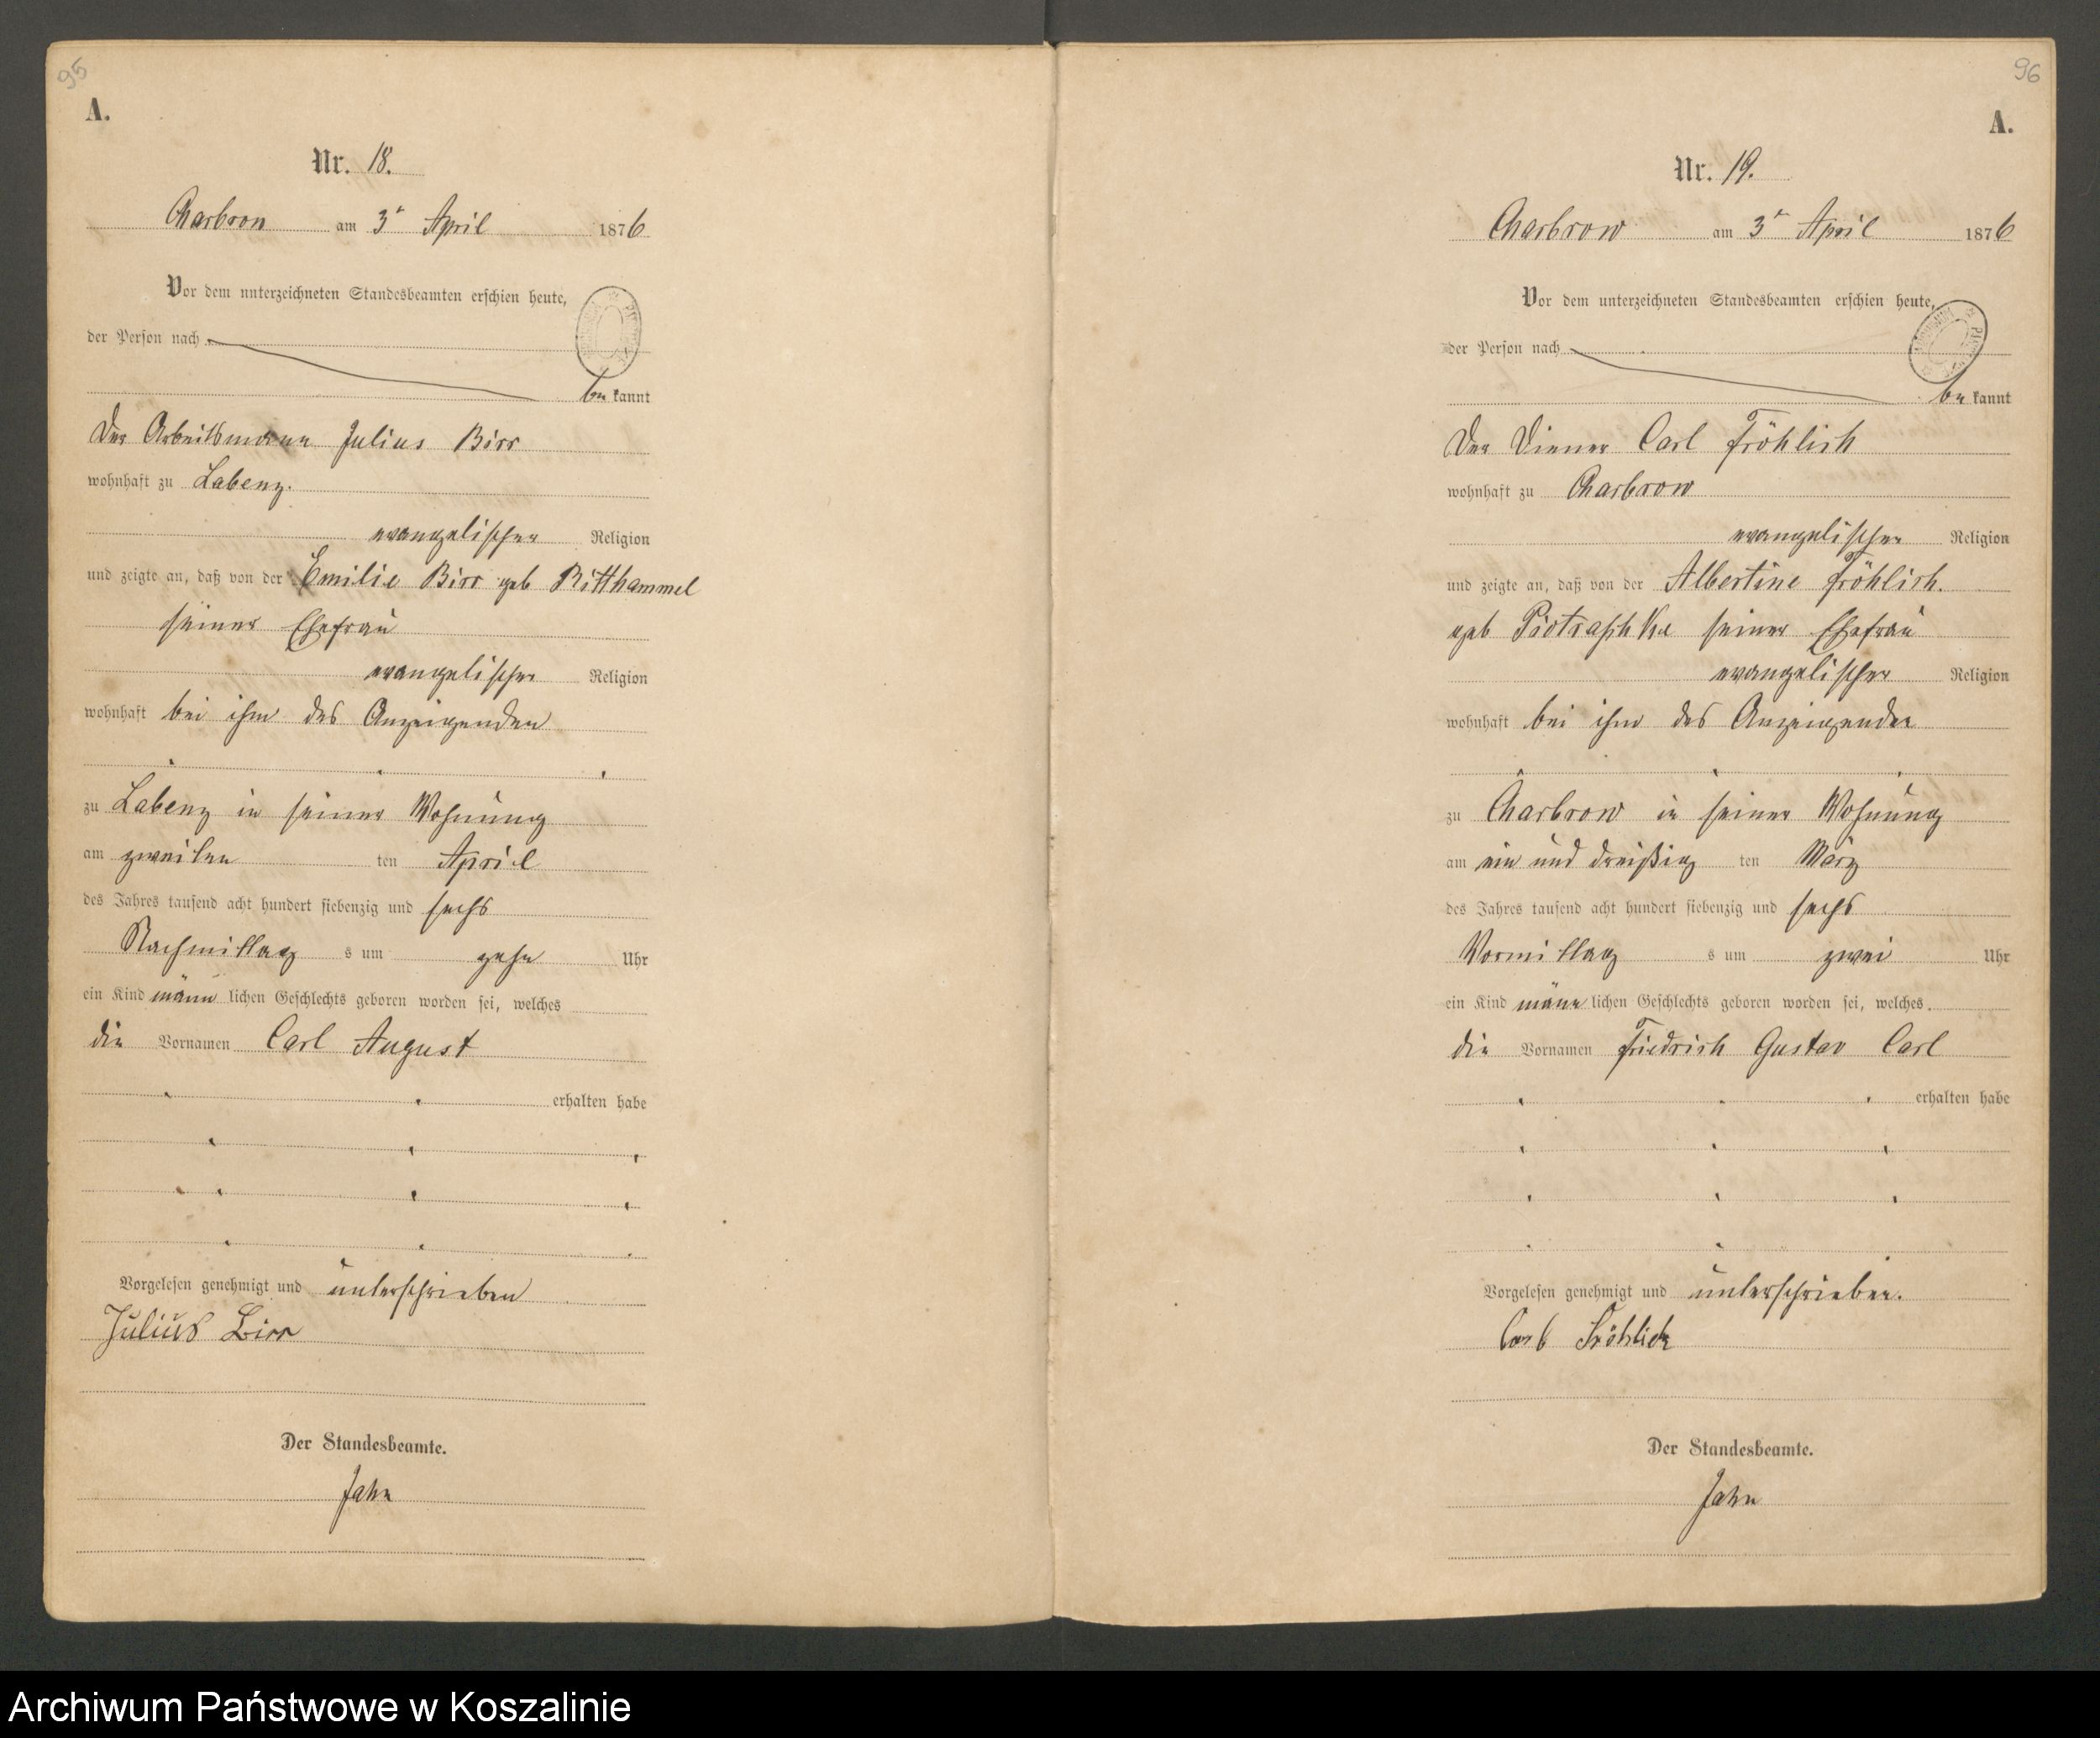 95
A.
Nr. 18.
Charbrow am 3t April 1876
Vor dem unterzeichneten Standesbeamten erschien heute,
der Person nach
be kannt
Der Arbeitsmann Julius Birr
wohnhaft zu Labenz.
evangelischer Religion
und zeigte an, daß von der Emilie Birr geb Ritthammel
seiner Ehefrau
evangelischer Religion
wohnhaft bei ihm des Anzeigenden
zu Labenz in seiner Wohnung
am zweiten ten April
des Jahres tausend acht hundert siebenzig und sechs
Nachmittag s um zehn Uhr
ein Kind männ lichen Geschlechts geboren worden sei, welches
die Vornamen Carl August
erhalten habe
Vorgelesen genehmigt und unterschrieben
Julius Birr
Der Standesbeamte.
Jahn
96
A.
Nr. 19.
Charbrow am 3t April 1876
Vor dem unterzeichneten Standesbeamten erschien heute,
der Person nach
be kannt
Der Diener Carl Fröhlich
wohnhaft zu Charbrow
evangelischer Religion
und zeigte an, daß von der Albertine Fröhlich.
geb seiner Ehefrau
evangelischer Religion
wohnhaft bei ihm des Anzeigenden
zu Charbrow in seiner Wohnung
am ein und dreißig ten März
des Jahres tausend acht hundert siebenzig und sechs
Vormittag s um zwei Uhr
ein Kind männ lichen Geschlechts geboren worden sei, welches
die Vornamen Friedrich Gustav Carl
erhalten habe
Vorgelesen genehmigt und unterschrieben.
Carl Fröhlich
Der Standesbeamte.
Jahn
Archiwum Państwowe w Koszalinie